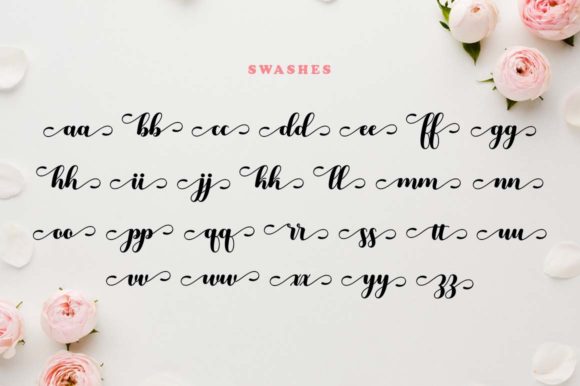 SWASHES
aa bb cc dd ee ff gg
hh ii jj kk ll mm nn
oo pp qq rr ss tt uu
vv ww xx yy zz